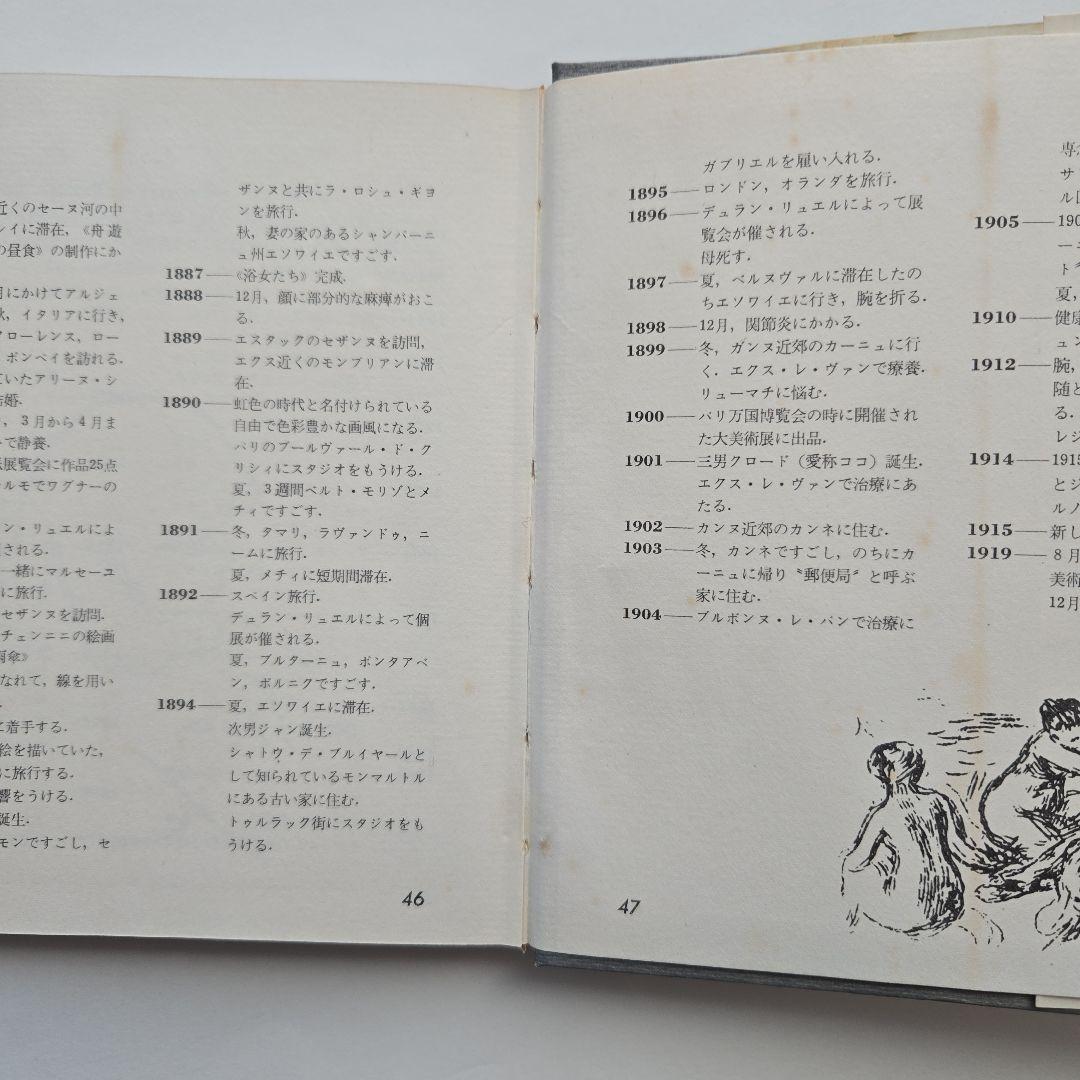 近くのセーヌ河の中
イに滞在，《舟遊
の昼食》の制作にか
月にかけてアルジェ
秋，イタリアに行き，
フローレンス，ロー
ポンペイを訪れる．
ていたアリーヌ・シ
結婚．
，3月から4月ま
で静養．
展覧会に作品25点
ルモでワグナーの
ン・リュエルによ
される．
一緒にマルセーユ
に旅行．
セザンヌを訪問．
チェンニニの絵画
雨傘》
なれて，線を用い
に着手する．
絵を描いていた，
に旅行する．
響をうける．
誕生．
モンですごし，セ
ザンヌと共にラ・ロシュ・ギヨ
ンを旅行．
秋，妻の家のあるシャンパーニ
ュ州エソワイエですごす．
1887—《浴女たち》完成．
1888—12月，顔に部分的な麻痺がおこ
る．
1889—エスタックのセザンヌを訪問，
エクス近くのモンブリアンに滞
在．
1890—虹色の時代と名付けられている
自由で色彩豊かな画風になる．
パリのブールヴァール・ド・ク
リシィにスタジオをもうける．
夏，3週間ベルト・モリゾとメ
ティですごす．
1891—冬，タマリ，ラヴァンドゥ，ニ
ームに旅行．
夏，メティに短期間滞在．
1892—スペイン旅行．
デュラン・リュエルによって個
展が催される．
夏，ブルターニュ，ポンタアベ
ン，ポルニクですごす．
1894—夏，エソワイエに滞在．
次男ジャン誕生．
シャトウ・デ・ブルイヤールと
して知られているモンマルトル
にある古い家に住む．
トゥルラック街にスタジオをも
うける．
46
ガブリエルを雇い入れる．
1895—ロンドン，オランダを旅行．
1896—デュラン・リュエルによって展
覧会が催される．
母死す．
1897—夏，ベルヌヴァルに滞在したの
ちエソワイエに行き，腕を折る．
1898—12月，関節炎にかかる．
1899—冬，ガンヌ近郊のカーニュに行
く．エクス・レ・ヴァンで療養．
リューマチに悩む．
1900—パリ万国博覧会の時に開催され
た大美術展に出品．
1901—三男クロード（愛称ココ）誕生．
エクス・レ・ヴァンで治療にあ
たる．
1902—カンヌ近郊のカンネに住む．
1903—冬，カンネですごし，のちにカ
ーニュに帰り〝郵便局〞と呼ぶ
家に住む．
1904—ブルボンヌ・レ・バンで治療に
専
サ
ル
1905—190
ーニ
ト
夏，
1910—健康
ュン
1912—腕，
随と
る．
レジ
1914—1915
とジ
ルノ
1915—新し
1919—8月
美術
12月
47